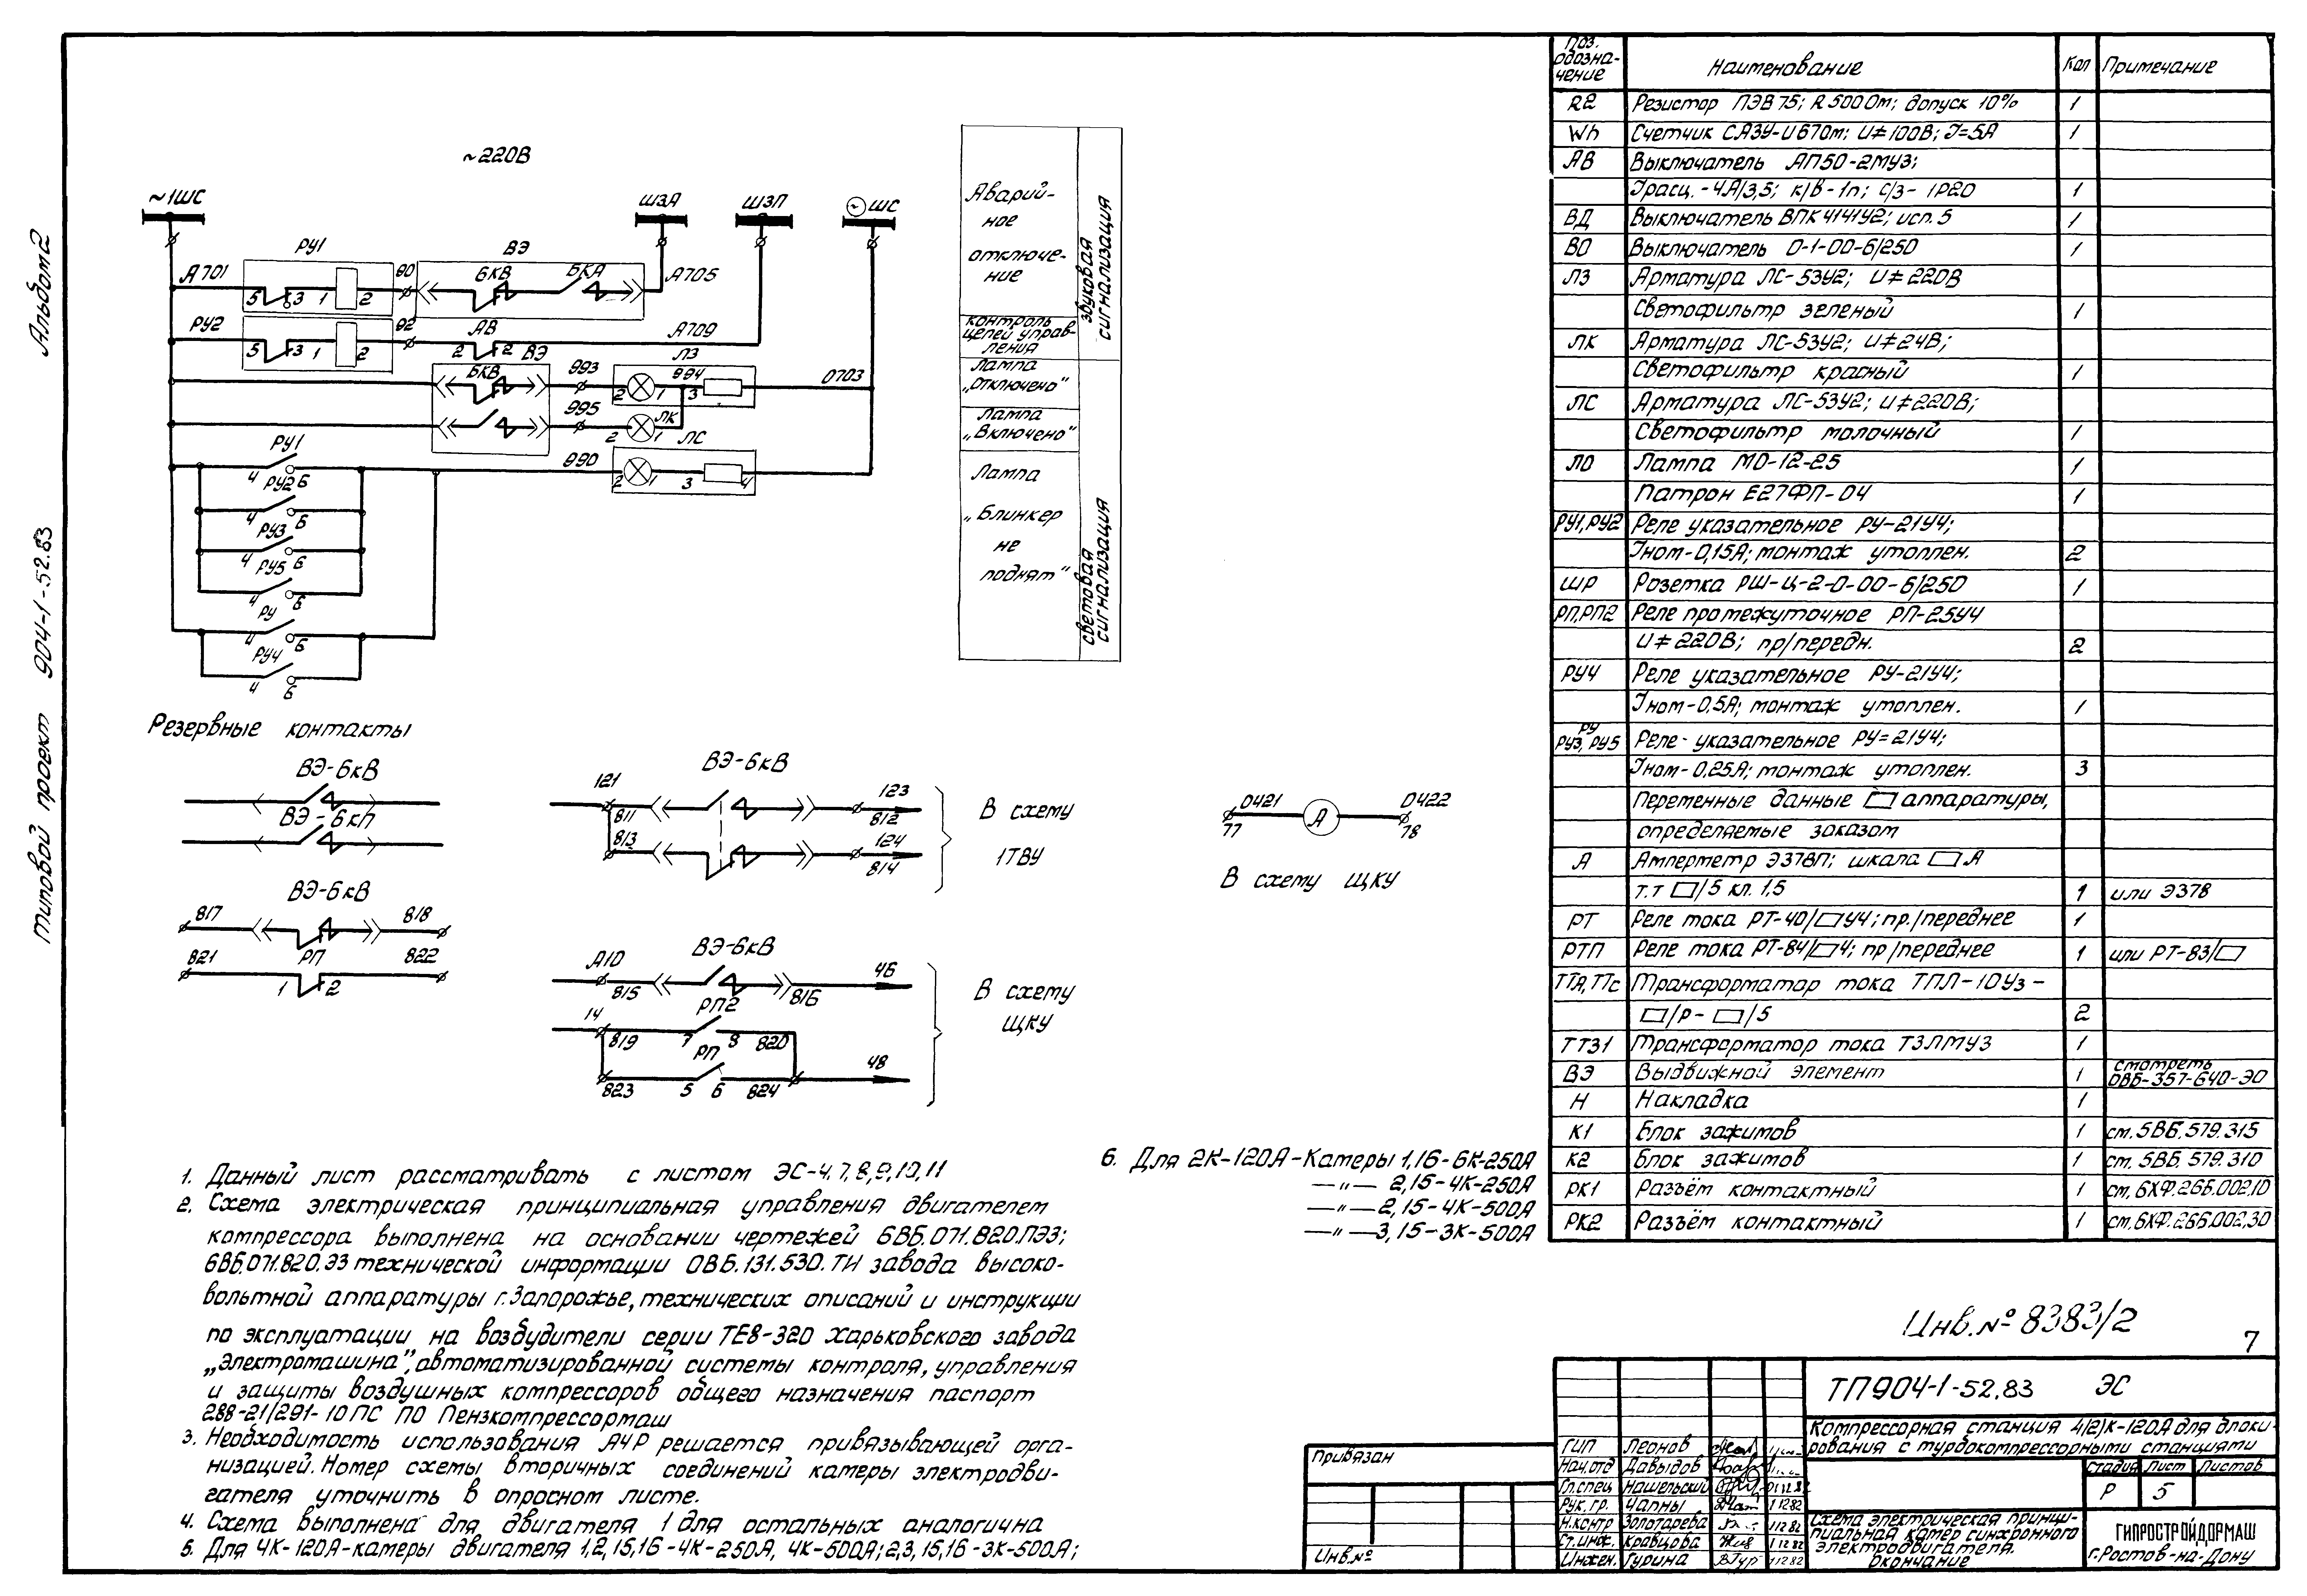 Альбом 2
Типовой проект 904-1-52.83
~220В
~1ШС
ШЗА
ШЗП
~ ШС
РУ1
ВЭ
А701
5 3 1 2
90
БКВ
БКА
А705
РУ2
5 3 1 2
92
АВ
2 2
А709
ВЭ
БКВ
993
ЛЗ
994
2 1 3
0703
995
ЛК
2 1
ЛС
990
2 1 3 4
РУ1
4 6
РУ2
4 6
РУ3
4 6
РУ5
4 6
РУ
4 6
РУ4
4 6
Аварий-
ное
отключе-
ние
звуковая
сигнализация
контроль
цепей управ-
ления
Лампа
„Отключено"
Лампа
„Включено"
Лампа
„Блинкер
не
поднят"
световая
сигнализация
Резервные контакты
ВЭ-БкВ
ВЭ-БкП
ВЭ-БкВ
817 818
РП
821 822
1 2
ВЭ-БкВ
121 123
811 812
813 124
814
В схему
1ТВУ
ВЭ-БкВ
А10 46
815 816
РП2
14
819 7 8 820
РП
48
823 5 6 824
В схему
ЩКУ
0421 А 0422
77 78
В схему ЩКУ
1. Данный лист рассматривать с листом ЭС-4,7,8,9,10,11
2. Схема электрическая принципиальная управления двигателем
компрессора выполнена на основании чертежей 6ВБ.071.820.ПЭ3;
6ВБ.071.820.Э3 технической информации 0ВБ.131.530.ТИ завода высоко-
вольтной аппаратуры г.Запорожье, технических описаний и инструкции
по эксплуатации на возбудители серии ТЕ8-320 Харьковского завода
„Электромашина", автоматизированной системы контроля, управления
и защиты воздушных компрессоров общего назначения паспорт
288-21/291-10ПС ПО Пензкомпрессормаш
3. Необходимость использования АЧР решается привязывающей орга-
низацией. Номер схемы вторичных соединений камеры электродви-
гателя уточнить в опросном листе.
4. Схема выполнена для двигателя 1 для остальных аналогична
5. Для 4К-120А-камеры двигателя 1,2,15,16-4К-250А, 4К-500А; 2,3,15,16-3К-500А;
6. Для 2К-120А-Камеры 1,16-6К-250А
—"— 2,15-4К-250А
—"— 2,15-4К-500А
—"— 3,15-3К-500А
Поз. обозна-чение Наименование Кол Примечание
R2 Резистор ПЭВ 75; R 500 Ом; допуск 10% 1
Wh Счетчик СА3У-И670м; U≠100В; I=5А 1
АВ Выключатель АП50-2МУ3;
Iрасц.-4А/3,5; к/в-1п; с/з-IP20 1
ВД Выключатель ВПК4141У2; исп. 5 1
ВО Выключатель 0-1-00-6/250 1
ЛЗ Арматура ЛС-53У2; U≠220В
Светофильтр зеленый 1
ЛК Арматура ЛС-53У2; U≠24В;
Светофильтр красный 1
ЛС Арматура ЛС-53У2; U≠220В;
Светофильтр молочный 1
ЛО Лампа МО-12-25 1
Патрон Е27ФП-04 1
РУ1,РУ2 Реле указательное РУ-21У4;
Iном-0,15А; монтаж утоплен. 2
ШР Розетка РШ-Ц-2-0-00-6/250 1
РП,РП2 Реле промежуточное РП-25У4
U≠220В; пр/передн. 2
РУ4 Реле указательное РУ-21У4;
Iном-0,5А; монтаж утоплен. 1
РУ РУ3, РУ5 Реле-указательное РУ=21У4;
Iном-0,25А; монтаж утоплен. 3
Переменные данные □ аппаратуры,
определяемые заказом
А Амперметр Э378П; шкала □ А
т.т □/5 кл. 1,5 1 или Э378
РТ Реле тока РТ-40/□У4; пр./переднее 1
РТП Реле тока РТ-84/□4; пр/переднее 1 или РТ-83/□
ТТа, ТТс Трансформатор тока ТПЛ-10У3-
□/Р-□/5 2
ТТЗ1 Трансформатор тока ТЗЛМУЗ 1
ВЭ Выдвижной элемент 1 смотреть 0ВБ-357-640-Э0
Н Накладка 1
К1 Блок зажимов 1 см. 5ВБ.579.315
К2 Блок зажимов 1 см. 5ВБ.579.310
РК1 Разъём контактный 1 см. 6ХФ.266.002.10
РК2 Разъём контактный 1 см. 6ХФ.266.002.30
Инв.№ 8383/2
7
ТП904-1-52.83 ЭС
Компрессорная станция 4(2)К-120А для блоки-
рования с турбокомпрессорными станциями
Стадия Лист Листов
Р 5
Схема электрическая принци-
пиальная камер синхронного
электродвигателя.
Окончание
ГИПРОСТРОЙДОРМАШ
г.Ростов-на-Дону
ГИП Леонов
Нач.отд Давыдов
Гл.спец Нашельский
Рук.гр. Чапны 1 12 82
Н.контр Золотарева 1 12 82
Ст.инж. Кравцова 1 12 82
Инжен. Гурина 1 12 82
Привязан
Инв.№